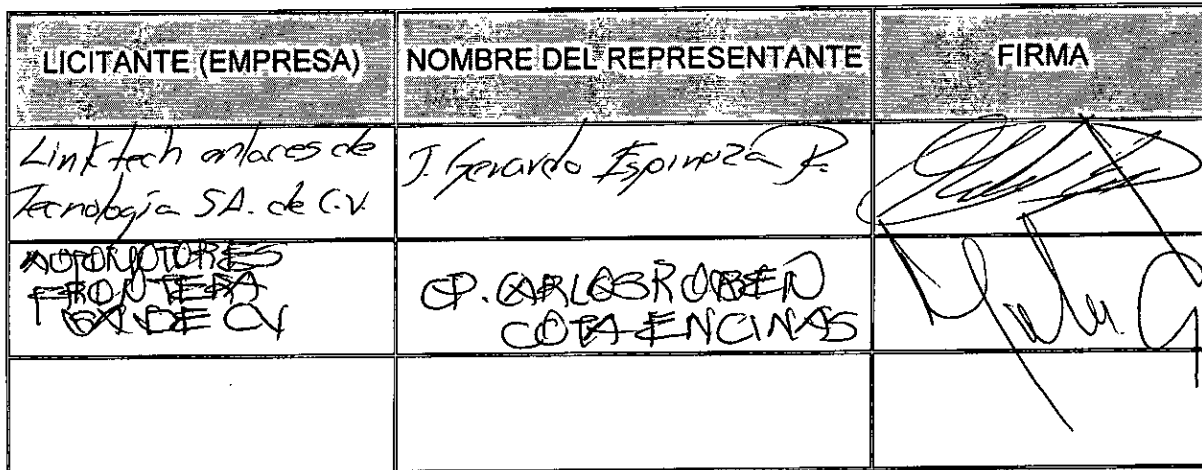 LICITANTE (EMPRESA) NOMBRE DEL REPRESENTANTE FIRMA
Linktech enlaces de
Tecnología SA. de C.V.
J. Gerardo Espinoza R.
AUTOMOTORES
FRONTERA
SA DE CV
CP. CARLOS RUBEN
COTA ENCINAS